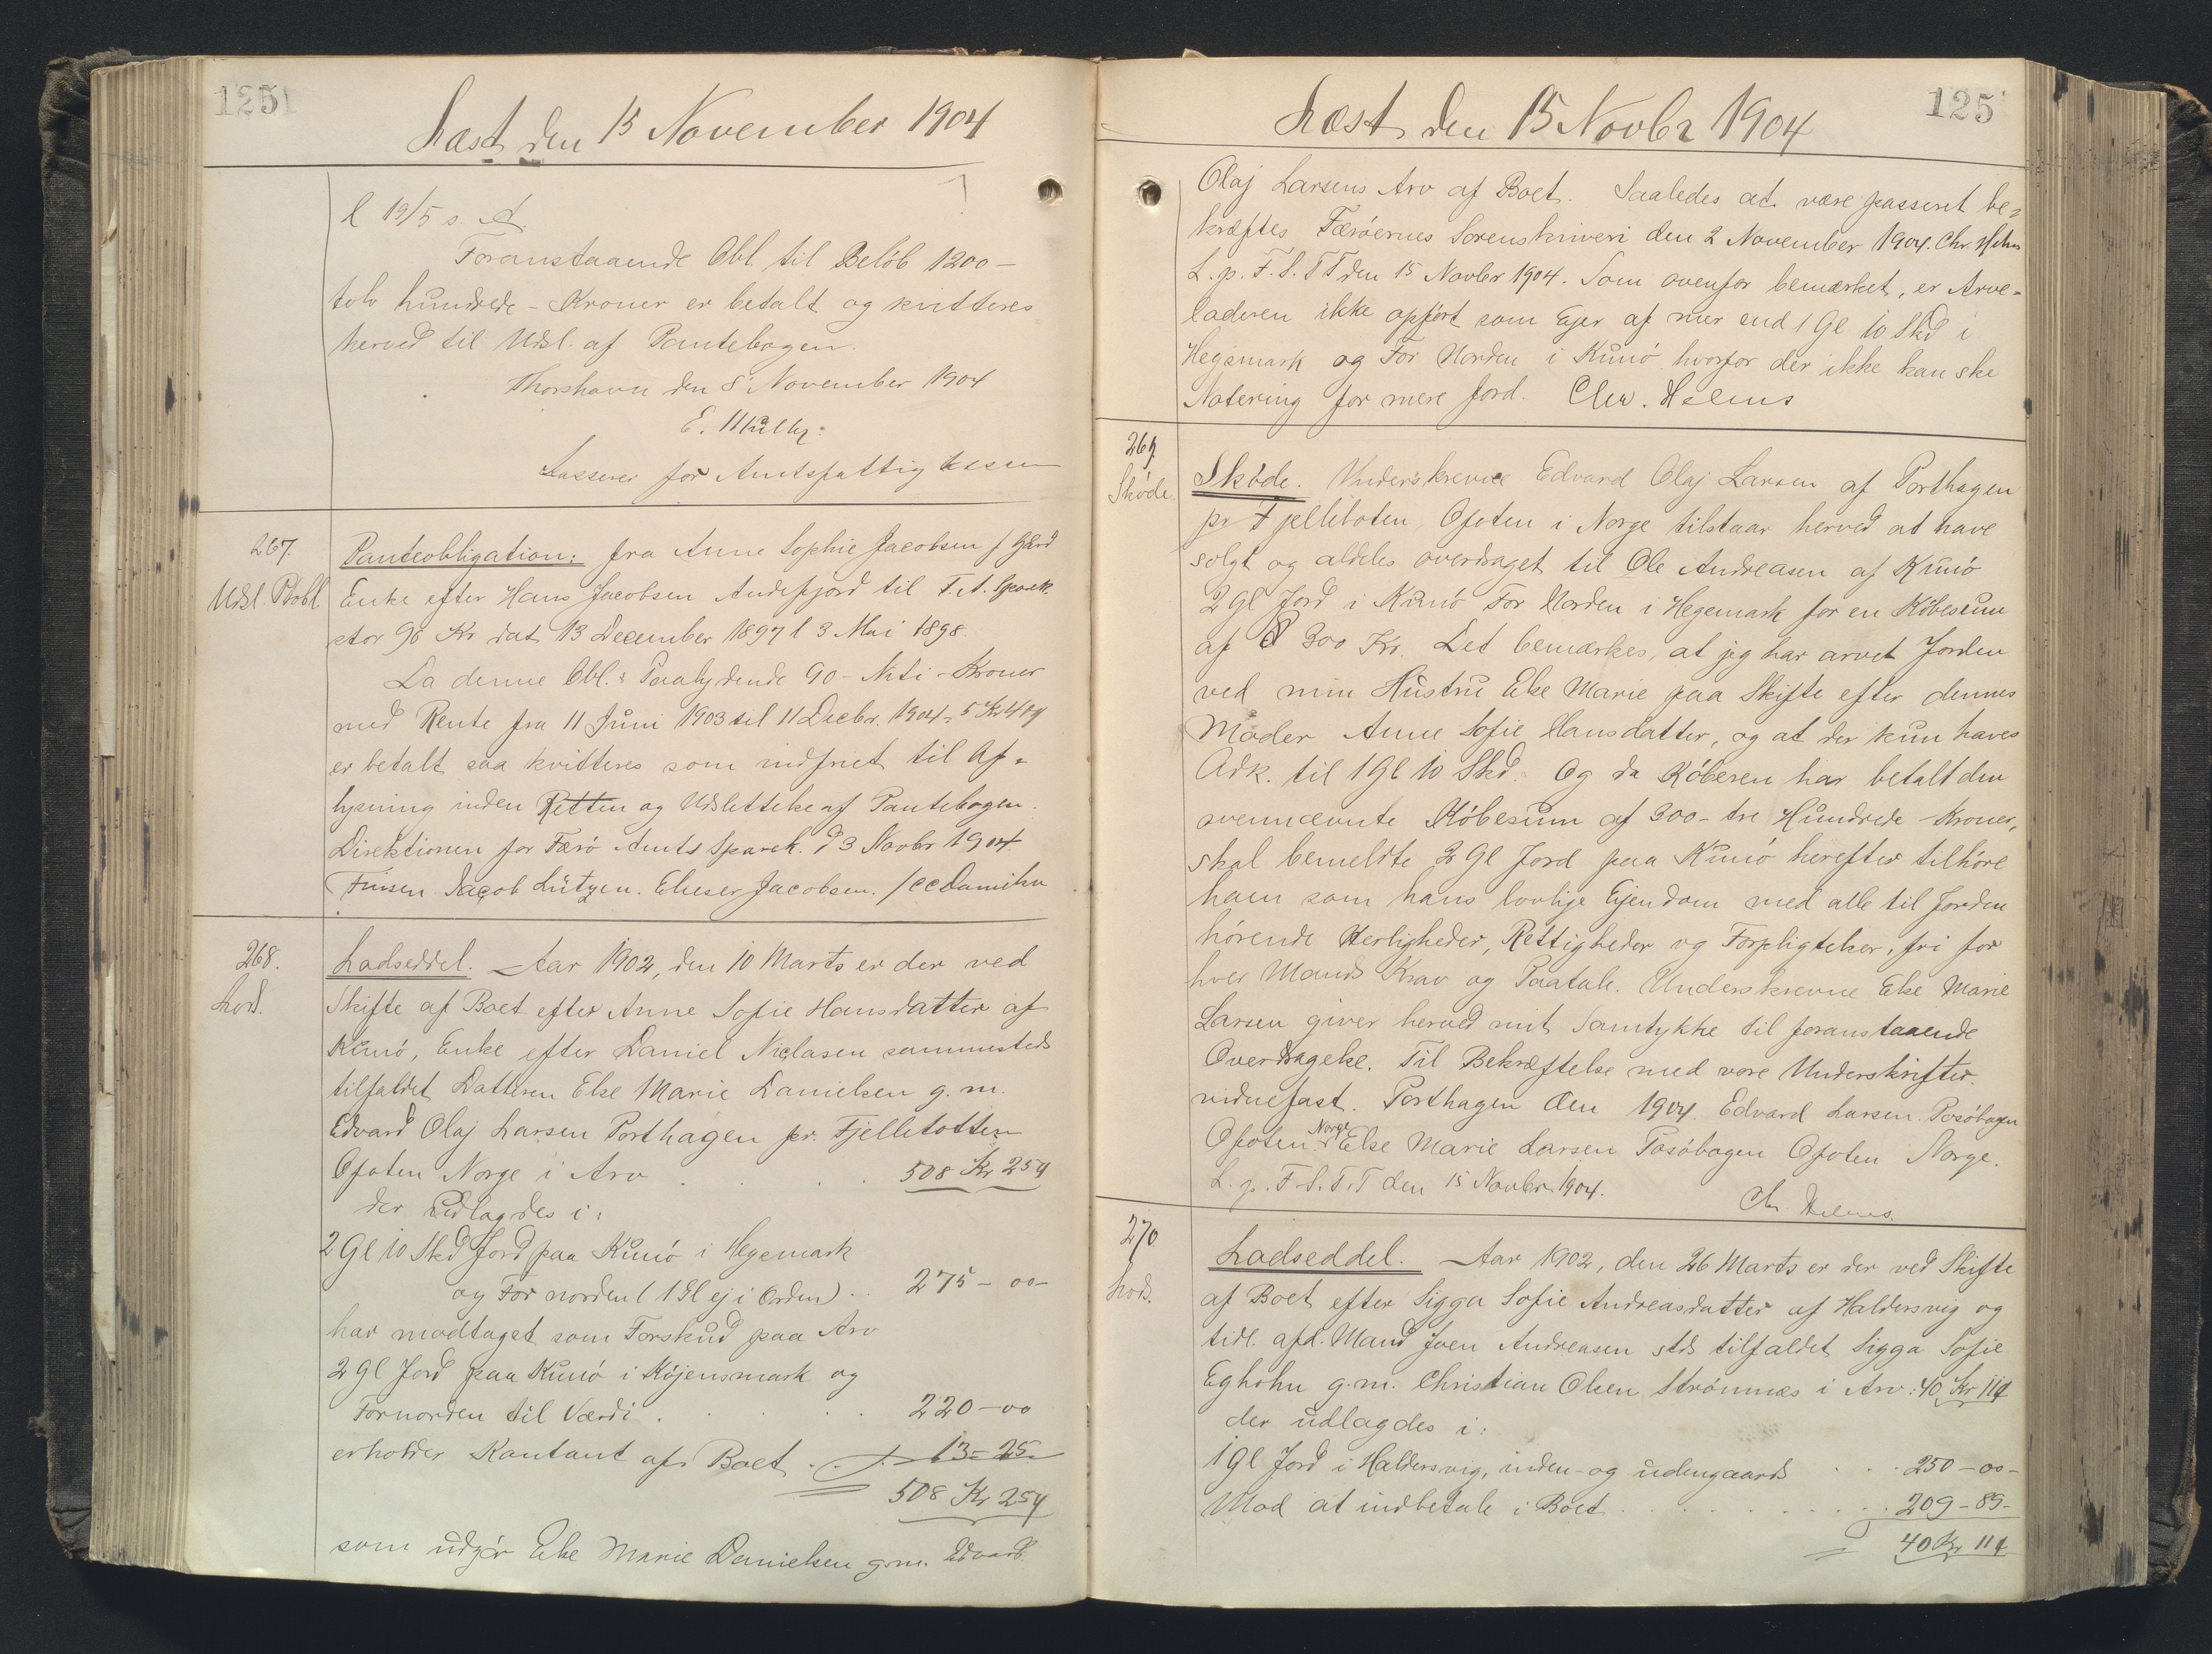 125
Læst den 15 November 1904
l 19/5 s. A.
Foranstaaende Obl. til Beløb 1200 –
tolv hundrede – Kroner er betalt og kvitteres
herved til Udsl. af Pantebogen.
Thorshavn den 8 November 1904
E.
Kasserer for Amtsfattigkassen
267.
Udsl. Ptobl
Panteobligation: fra Anne Sophie Jacobsen f Gård
Enke efter Hans Jacobsen Andefjord til F. A. Spark.
stor 90 Kr dat 13 December 1897 l 3 Mai 1898.
Da denne Obl. Paalydende 90 – Niti – Kroner
med Rente fra 11 Juni 1903 til 11 Decbr. 1904 = 5 Kr
er betalt saa kvitteres som indfriet til Af=
lysning inden Retten og Udslettelse af Pantebogen.
Direktionen for Færø Amts Sparek. d 3 Novbr 1904.
Finsen Jacob Lützen. Elieser Jacobsen. / CC Danielsen
268.
Lods.
Lodseddel. Aar 1902, den 10 Marts er der ved
Skifte af Boet efter Anne Sofie Hansdatter af
Kunø, Enke efter Daniel Niclasen sammesteds
tilfaldet Datteren Else Marie Danielsen g. m.
Edvard Olaj Larsen Porthagen pr. Fjelletotten
Ofoten Norge i Arv . . . 508 Kr 25 Ø
der Udlagdes i:
2 Gl 10 Skd Jord paa Kunø i Hegemark
og For norden (1 Gl ej i Orden) . . 275 – 00 –
har modtaget som Forskud paa Arv
2 Gl Jord paa Kunø i Köjensmark og
Fornorden til Værdi . . . 220 – 00
erholder Kontant af Boet . . . 13 = 25
508 Kr 25 Ø
som udgør Else Marie Danielsen g. m. Edvard
125
Læst den 15 Novbr 1904
Olaj Larsens Arv af Boet. Saaledes at være passeret be=
kræftes Færøernes Sorenskriveri den 2 November 1904. Chr Helms
L. p. F. S. T T den 15 Novbr 1904. Som ovenfor bemærket, er Arve=
laderen ikke opført som Ejer af mer end 1 Gl 10 Skd i
Hegemark og For Norden i Kunø hvorfor der ikke kan ske
Notering for mere Jord. Chr. Helms
269
Skøde
Skøde. Underskrevne Edvard Olaj Larsen af Porthagen
pr Fjelletoten, Ofoten i Norge tilstaar herved at have
solgt og aldeles overdraget til Ole Andreasen af Kunø
2 Gl Jord i Kunø For Norden i Hegemark for en Købesum
af 300 Kr. Det bemærkes, at jeg har arvet Jorden
ved min Hustru Else Marie paa Skifte efter dennes
Moder Anne Sofie Hansdatter, og at der kun haves
Adk. til 1 Gl 10 Skd. Og da Køberen har betalt den
ovennævnte Købesum af 300 – tre Hundrede – Kroner,
skal bemeldte 2 Gl Jord paa Kunø herefter tilhøre
ham som hans lovlige Ejendom med alle til Jorden
hørende Herligheder, Rettigheder og Forpligtelser, fri for
hver Mands Krav og Paatale. Underskrevne Else Marie
Larsen giver herved mit Samtykke til foranstaaende
Overdragelse. Til Bekræftelse med vore Underskrifter.
vidnefast. Porthagen den 1904. Edvard Larsen. Posøbogen
Ofoten Norge Else Marie Larsen Posøbogen Ofoten Norge.
L. p. F. S. T. T den 15 Novbr. 1904.
Chr. Helms.
270
Lods.
Lodseddel. Aar 1902, den 26 Marts er der ved Skifte
af Boet efter Sigga Sofie Andreasdatter af Haldersvig og
tidl. afd. Mand Joen Andreasen stds tilfaldet Sigga Sofie
Egholm g. m. Christian Olsen Strømnæs i Arv: 40 Kr 11 Ø
der udlagdes i:
1 Gl Jord i Haldersvig, inden- og udengaards . . . 250 – 00 –
Mod at indbetale i Boet . . . 209 – 89 –
40 Kr 11 Ø